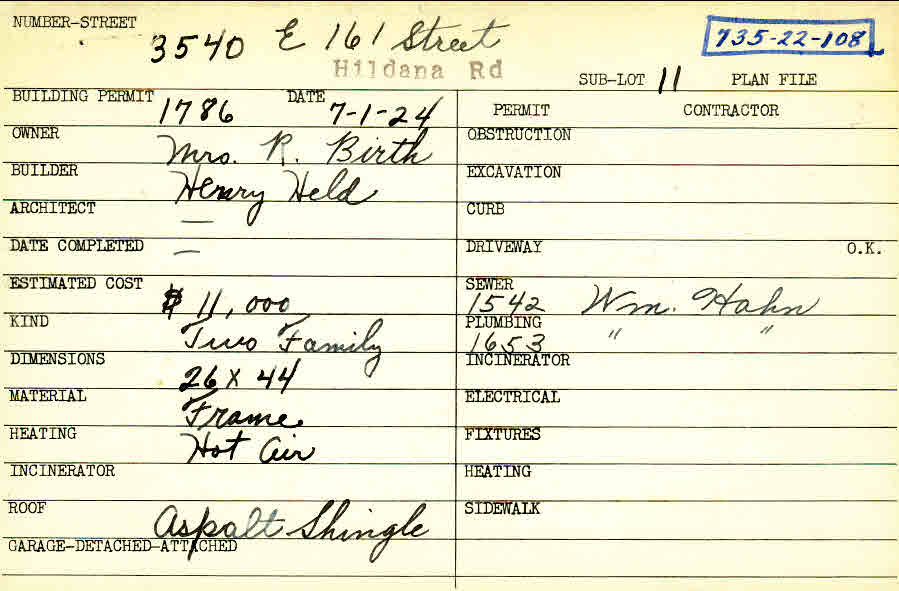 NUMBER-STREET 3540 E 161 Street 735-22-108
Hildana Rd
SUB-LOT 11 PLAN FILE
BUILDING PERMIT 1786 DATE 7-1-24
OWNER Mrs. R. Birth
BUILDER Henry Held
ARCHITECT —
DATE COMPLETED —
ESTIMATED COST $ 11,000
KIND Two Family
DIMENSIONS 26 x 44
MATERIAL Frame
HEATING Hot Air
INCINERATOR
ROOF Aspalt Shingle
GARAGE-DETACHED-ATTACHED
PERMIT CONTRACTOR
OBSTRUCTION
EXCAVATION
CURB
DRIVEWAY O.K.
SEWER 1542 Wm. Hahn
PLUMBING 1653 " "
INCINERATOR
ELECTRICAL
FIXTURES
HEATING
SIDEWALK